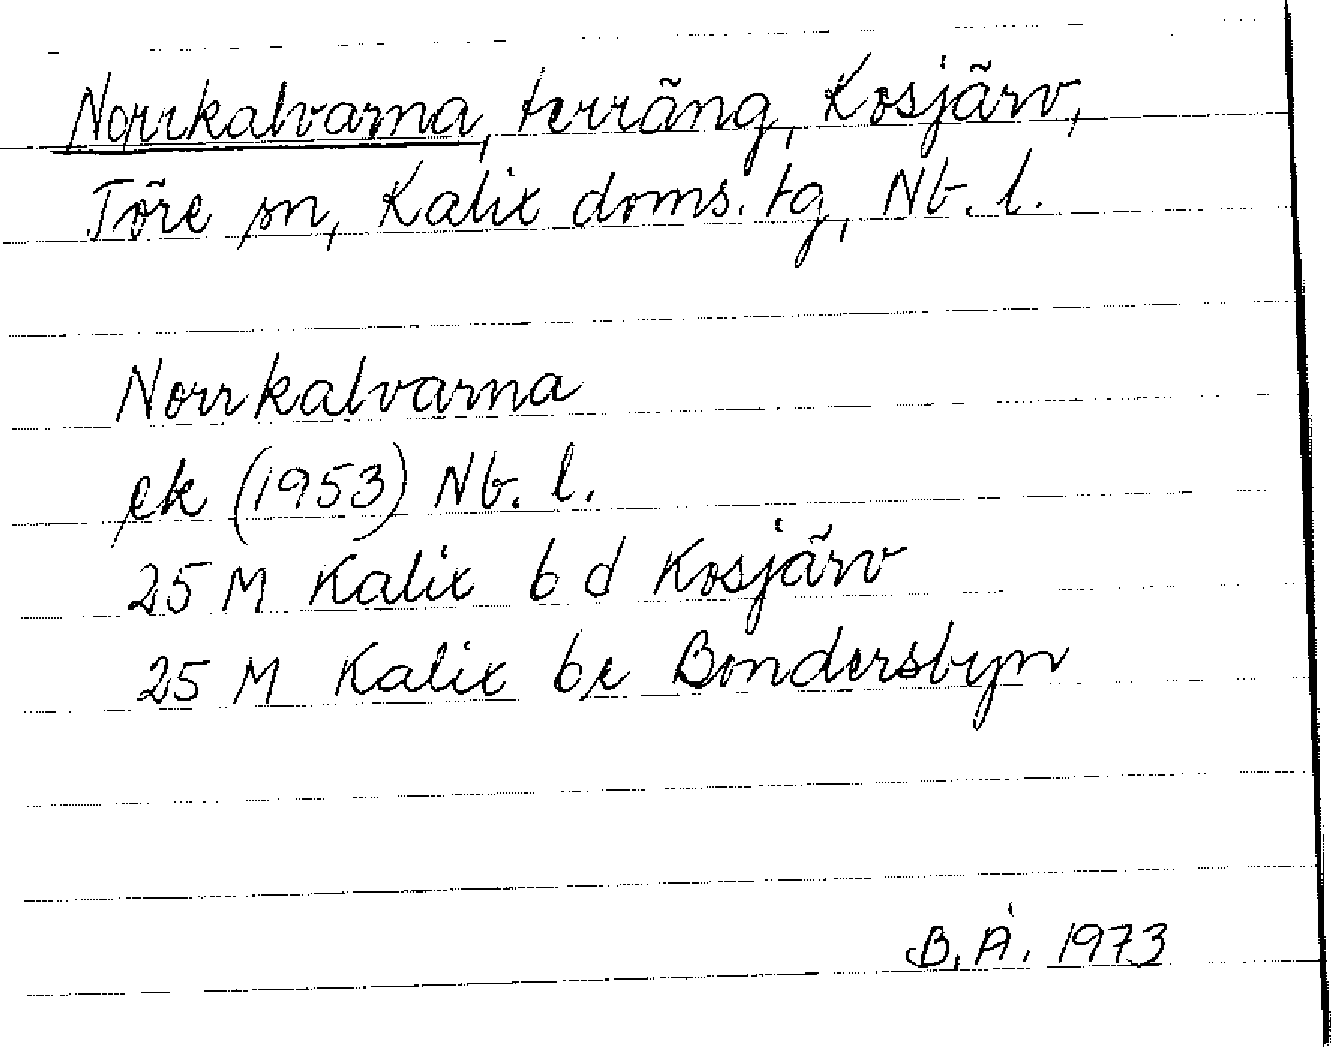 Norrkalvarna, terräng, Kosjärv,
Töre sn, Kalix doms. tg, Nb. l.
Norrkalvarna
ek (1953) Nb. l.
25 M Kalix 6 d Kosjärv
25 M Kalix 6e Bondersbyn
B.Å. 1973